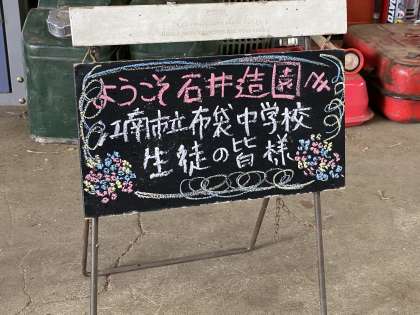 ようこそ石井造園㈱へ
江南市立布袋中学校
生徒の皆様